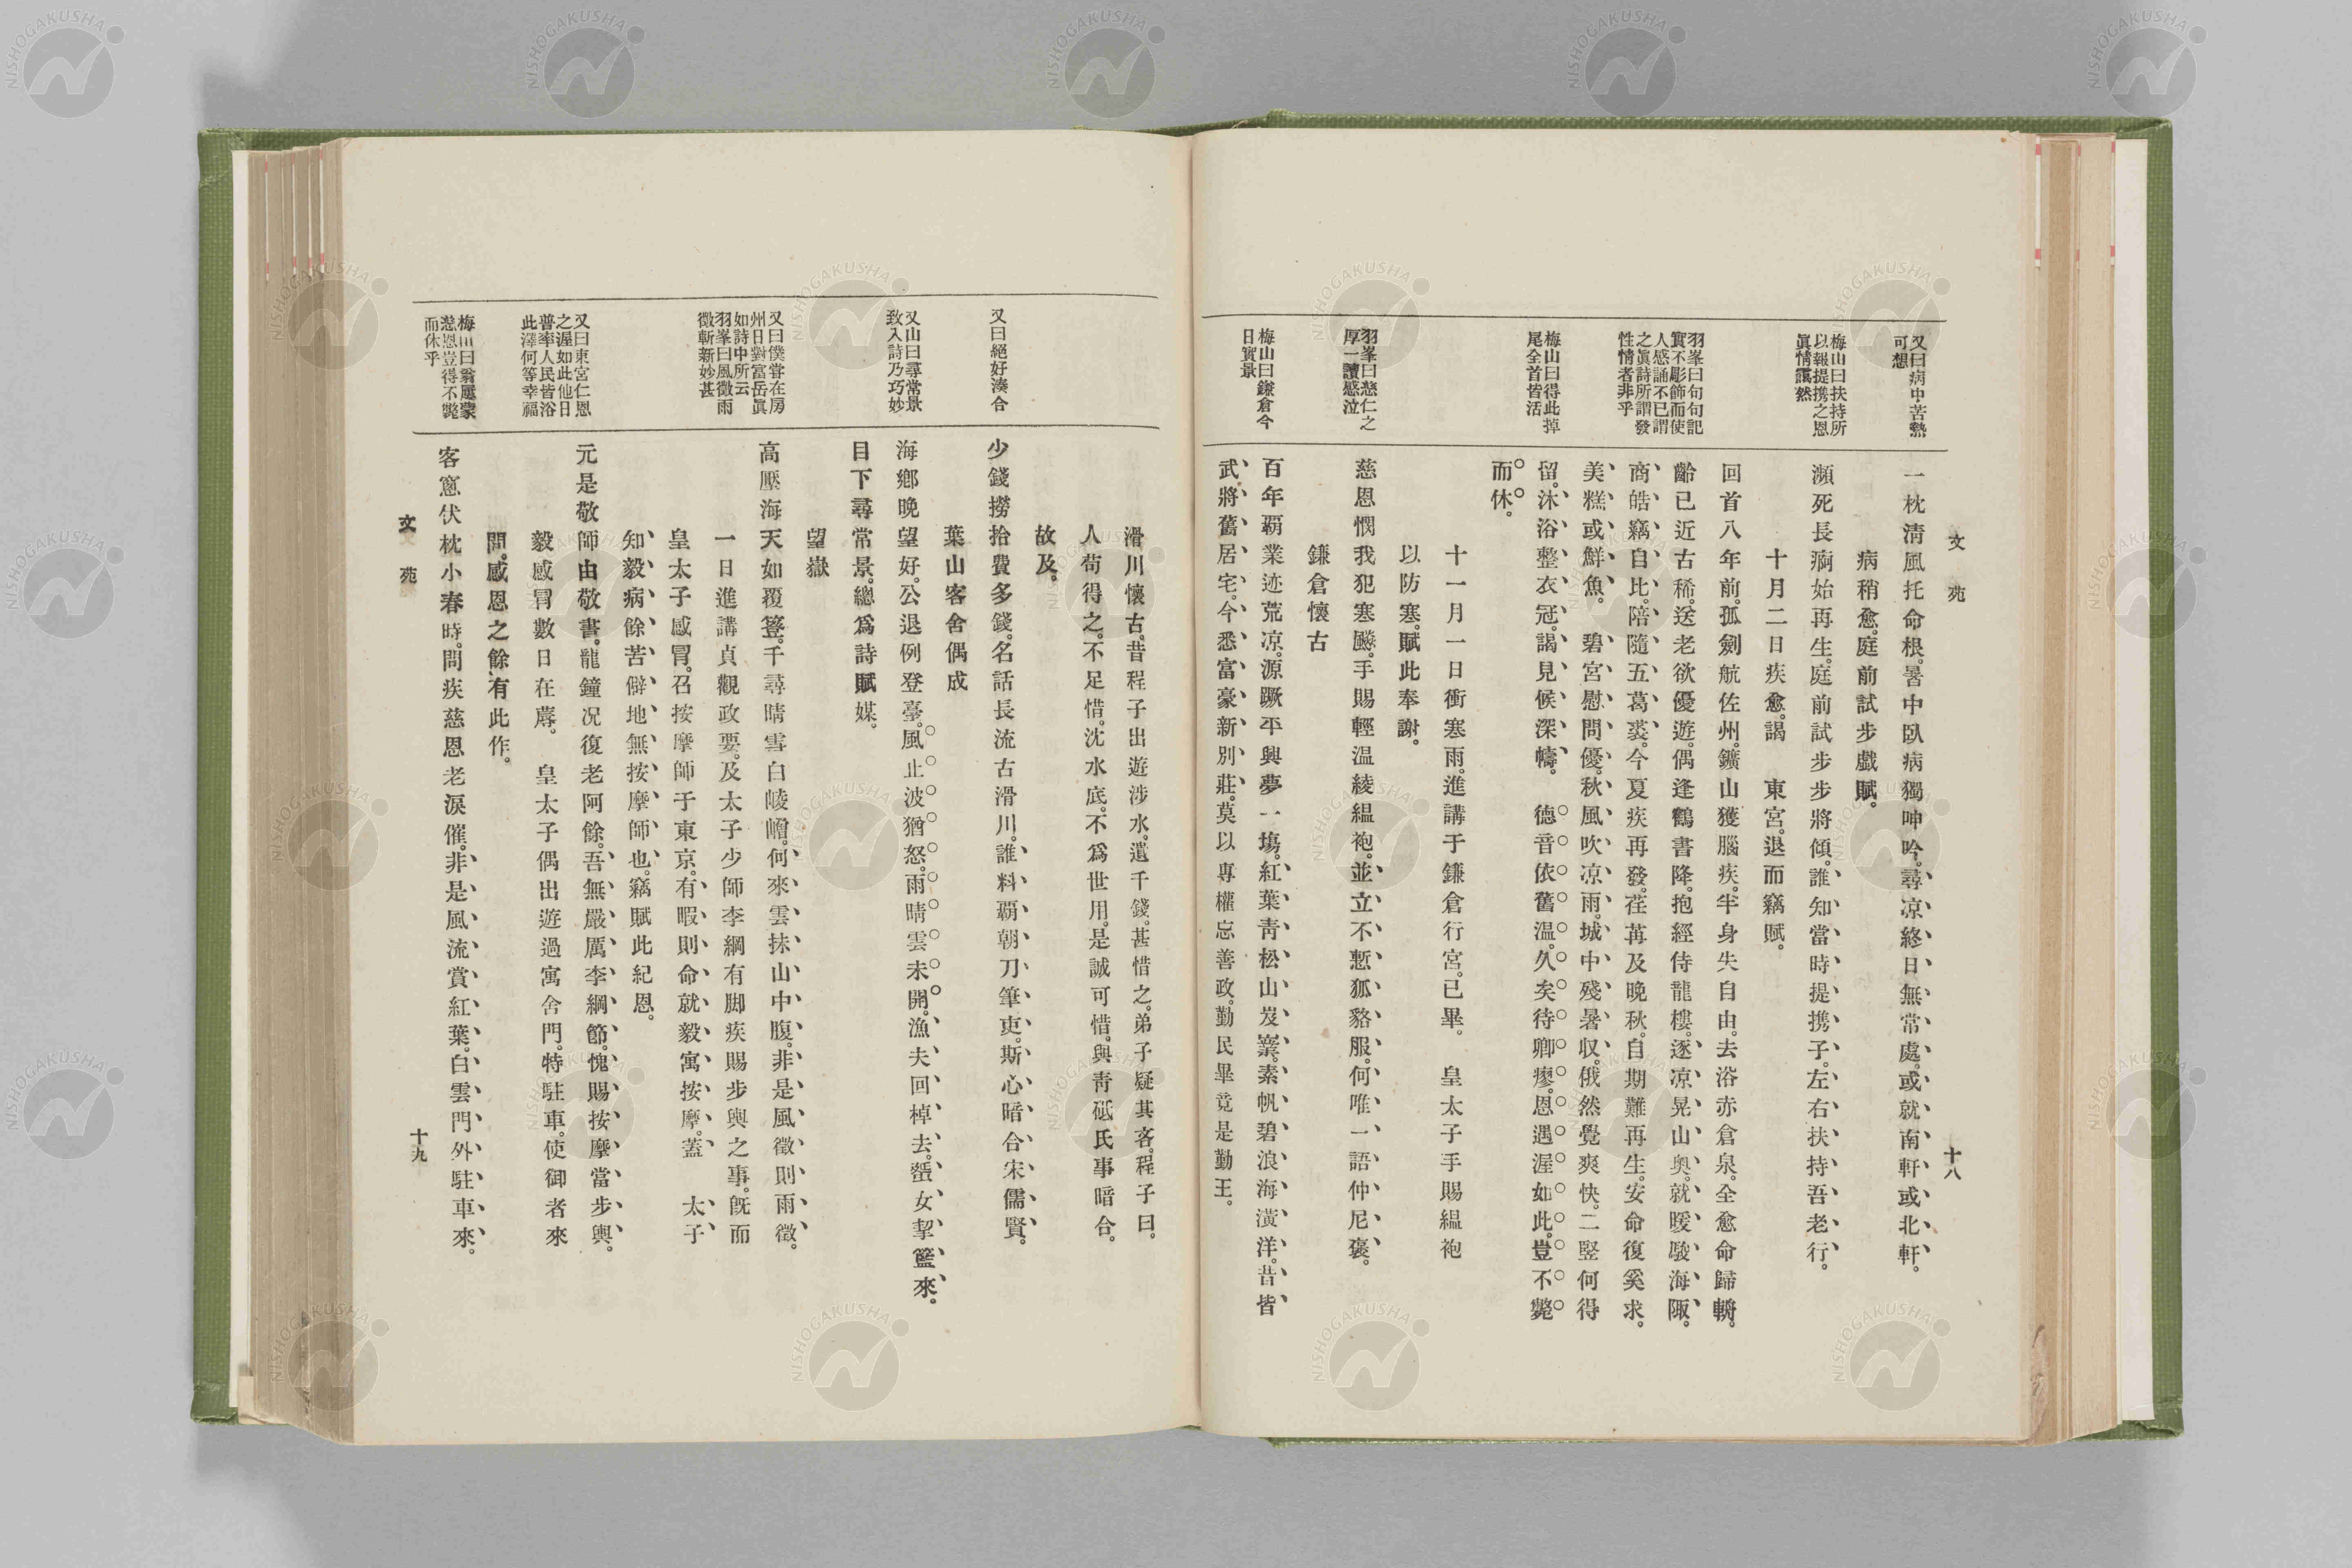 文苑
十八
又曰病中苦熱
可想
梅山曰扶持所
以報提携之恩
眞情靄然
羽峯曰句句記
實不彫飾而使
人感誦不已謂
之眞詩所謂發
性情者非乎
梅山曰得此掉
尾全首皆活
羽峯曰慈仁之
厚一讀感泣
梅山曰鎌倉今
日實景
一枕淸風托命根。暑中臥病獨呻吟。尋凉終日無常處。或就南軒或北軒。
病稍愈。庭前試步戲賦。
瀕死長痾始再生。庭前試步步將傾。誰知當時提携子。左右扶持吾老行。
十月二日疾愈。謁 東宮。退而竊賦。
回首八年前。孤劍航佐州。鑛山獲腦疾。半身失自由。去浴赤倉泉。全愈命歸輈。
齡已近古稀。送老欲優遊。偶逢鶴書降。抱經侍龍樓。逐凉晃山奧。就暖駿海陬。
商皓竊自比。陪隨五葛裘。今夏疾再發。荏苒及晚秋。自期難再生。安命復奚求。
美糕或鮮魚。 碧宮慰問優。秋風吹凉雨。城中殘暑収。俄然覺爽快。二竪何得
留。沐浴整衣冠。謁見候深幬。 德音依舊温。久矣待卿瘳。恩遇渥如此。豈不斃
而休。
十一月一日衝寒雨。進講于鎌倉行宮。已畢。 皇太子手賜縕袍
以防寒。賦此奉謝。
慈恩憫我犯寒飈。手賜輕温綾縕袍。並立不慙狐貉服。何唯一語仲尼褒。
鎌倉懷古
百年覇業迹荒凉。源蹶平興夢一場。紅葉靑松山岌嶪。素帆碧浪海潢洋。昔皆
武將舊居宅。今悉富豪新別莊。莫以專權忘善政。勤民畢竟是勤王。
又曰絕好湊合
又山曰尋常景
致入詩乃巧妙
又曰僕甞在房
州日對富岳眞
如詩中所云
羽峯曰風徵雨
徵斬新妙甚
又曰東宮仁恩
之渥如此他日
普率人民皆浴
此澤何等幸福
梅山曰翁屢蒙
慈恩豈得不斃
而休乎
滑川懷古。昔程子出遊涉水。遺千錢。甚惜之。弟子疑其吝。程子曰。
人苟得之。不足惜。沈水底。不爲世用。是誠可惜。與靑砥氏事暗合。
故及。
少錢撈拾費多錢。名話長流古滑川。誰料覇朝刀筆吏。斯心暗合宋儒賢。
葉山客舍偶成
海鄕晚望好。公退例登臺。風止波猶怒。雨晴雲未開。漁夫回棹去。蜑女挈籃來。
目下尋常景。總爲詩賦媒。
望嶽
高壓海天如覆簦。千尋晴雪白崚嶒。何來雲抹山中腹。非是風徵則雨徵。
一日進講貞觀政要。及太子少師李綱有脚疾賜步輿之事。旣而
皇太子感冒。召按摩師于東京。有暇則命就毅寓按摩。蓋 太子
知毅病餘苦僻地無按摩師也。竊賦此紀恩。
元是敬師由敬書。龍鐘况復老阿餘。吾無嚴厲李綱節。愧賜按摩當步輿。
毅感冒數日在蓐。 皇太子偶出遊過寓舍門。特駐車。使御者來
問。感恩之餘。有此作。
客窻伏枕小春時。問疾慈恩老淚催。非是風流賞紅葉。白雲門外駐車來。
文苑
十九